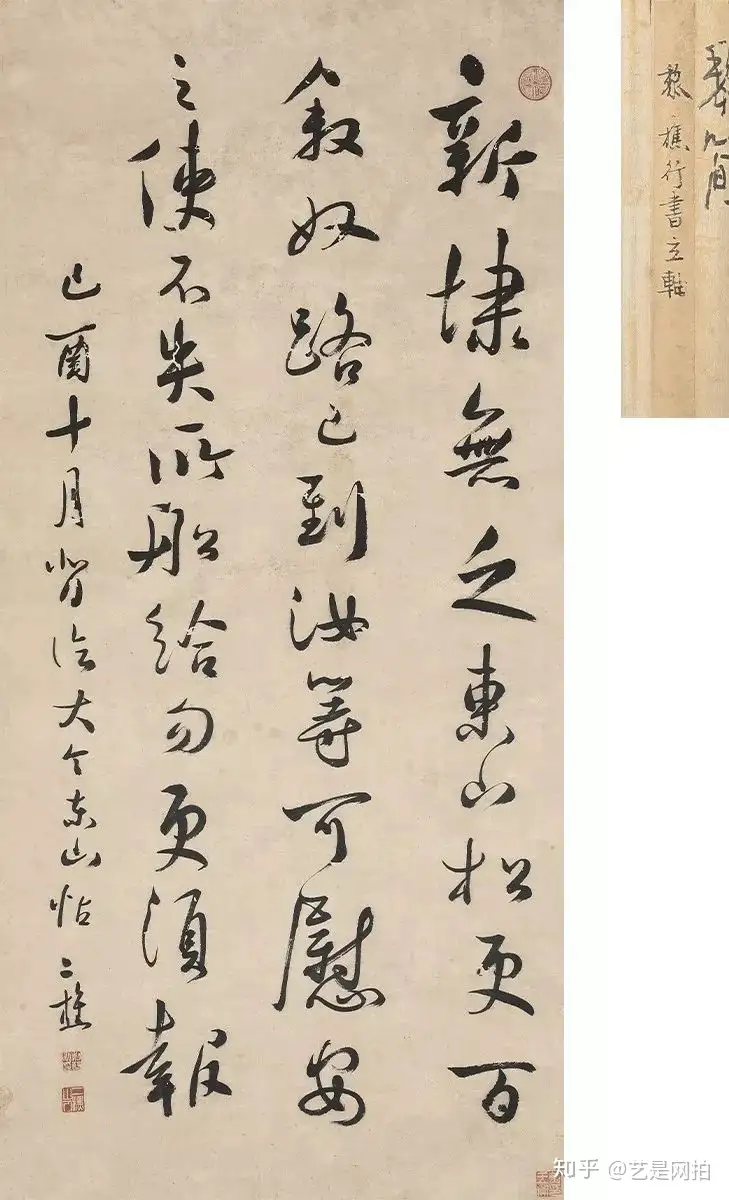 新埭無乏東山松更百
敘奴路已到汝等可慰安
之使不失所船給勿更須報
己酉十月背臨大令東山帖 二樵
黎二樵行書立軸
知乎 @艺是网拍